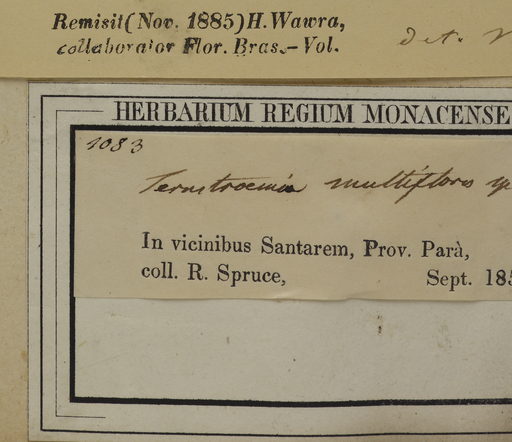 Remisit (Nov. 1885) H. Wawra,
collaborator Flor. Bras.-Vol.
det.
HERBARIUM REGIUM MONACENSE
1083
Ternstroemia multiflora
In vicinibus Santarem, Prov. Parà,
coll. R. Spruce, Sept. 185